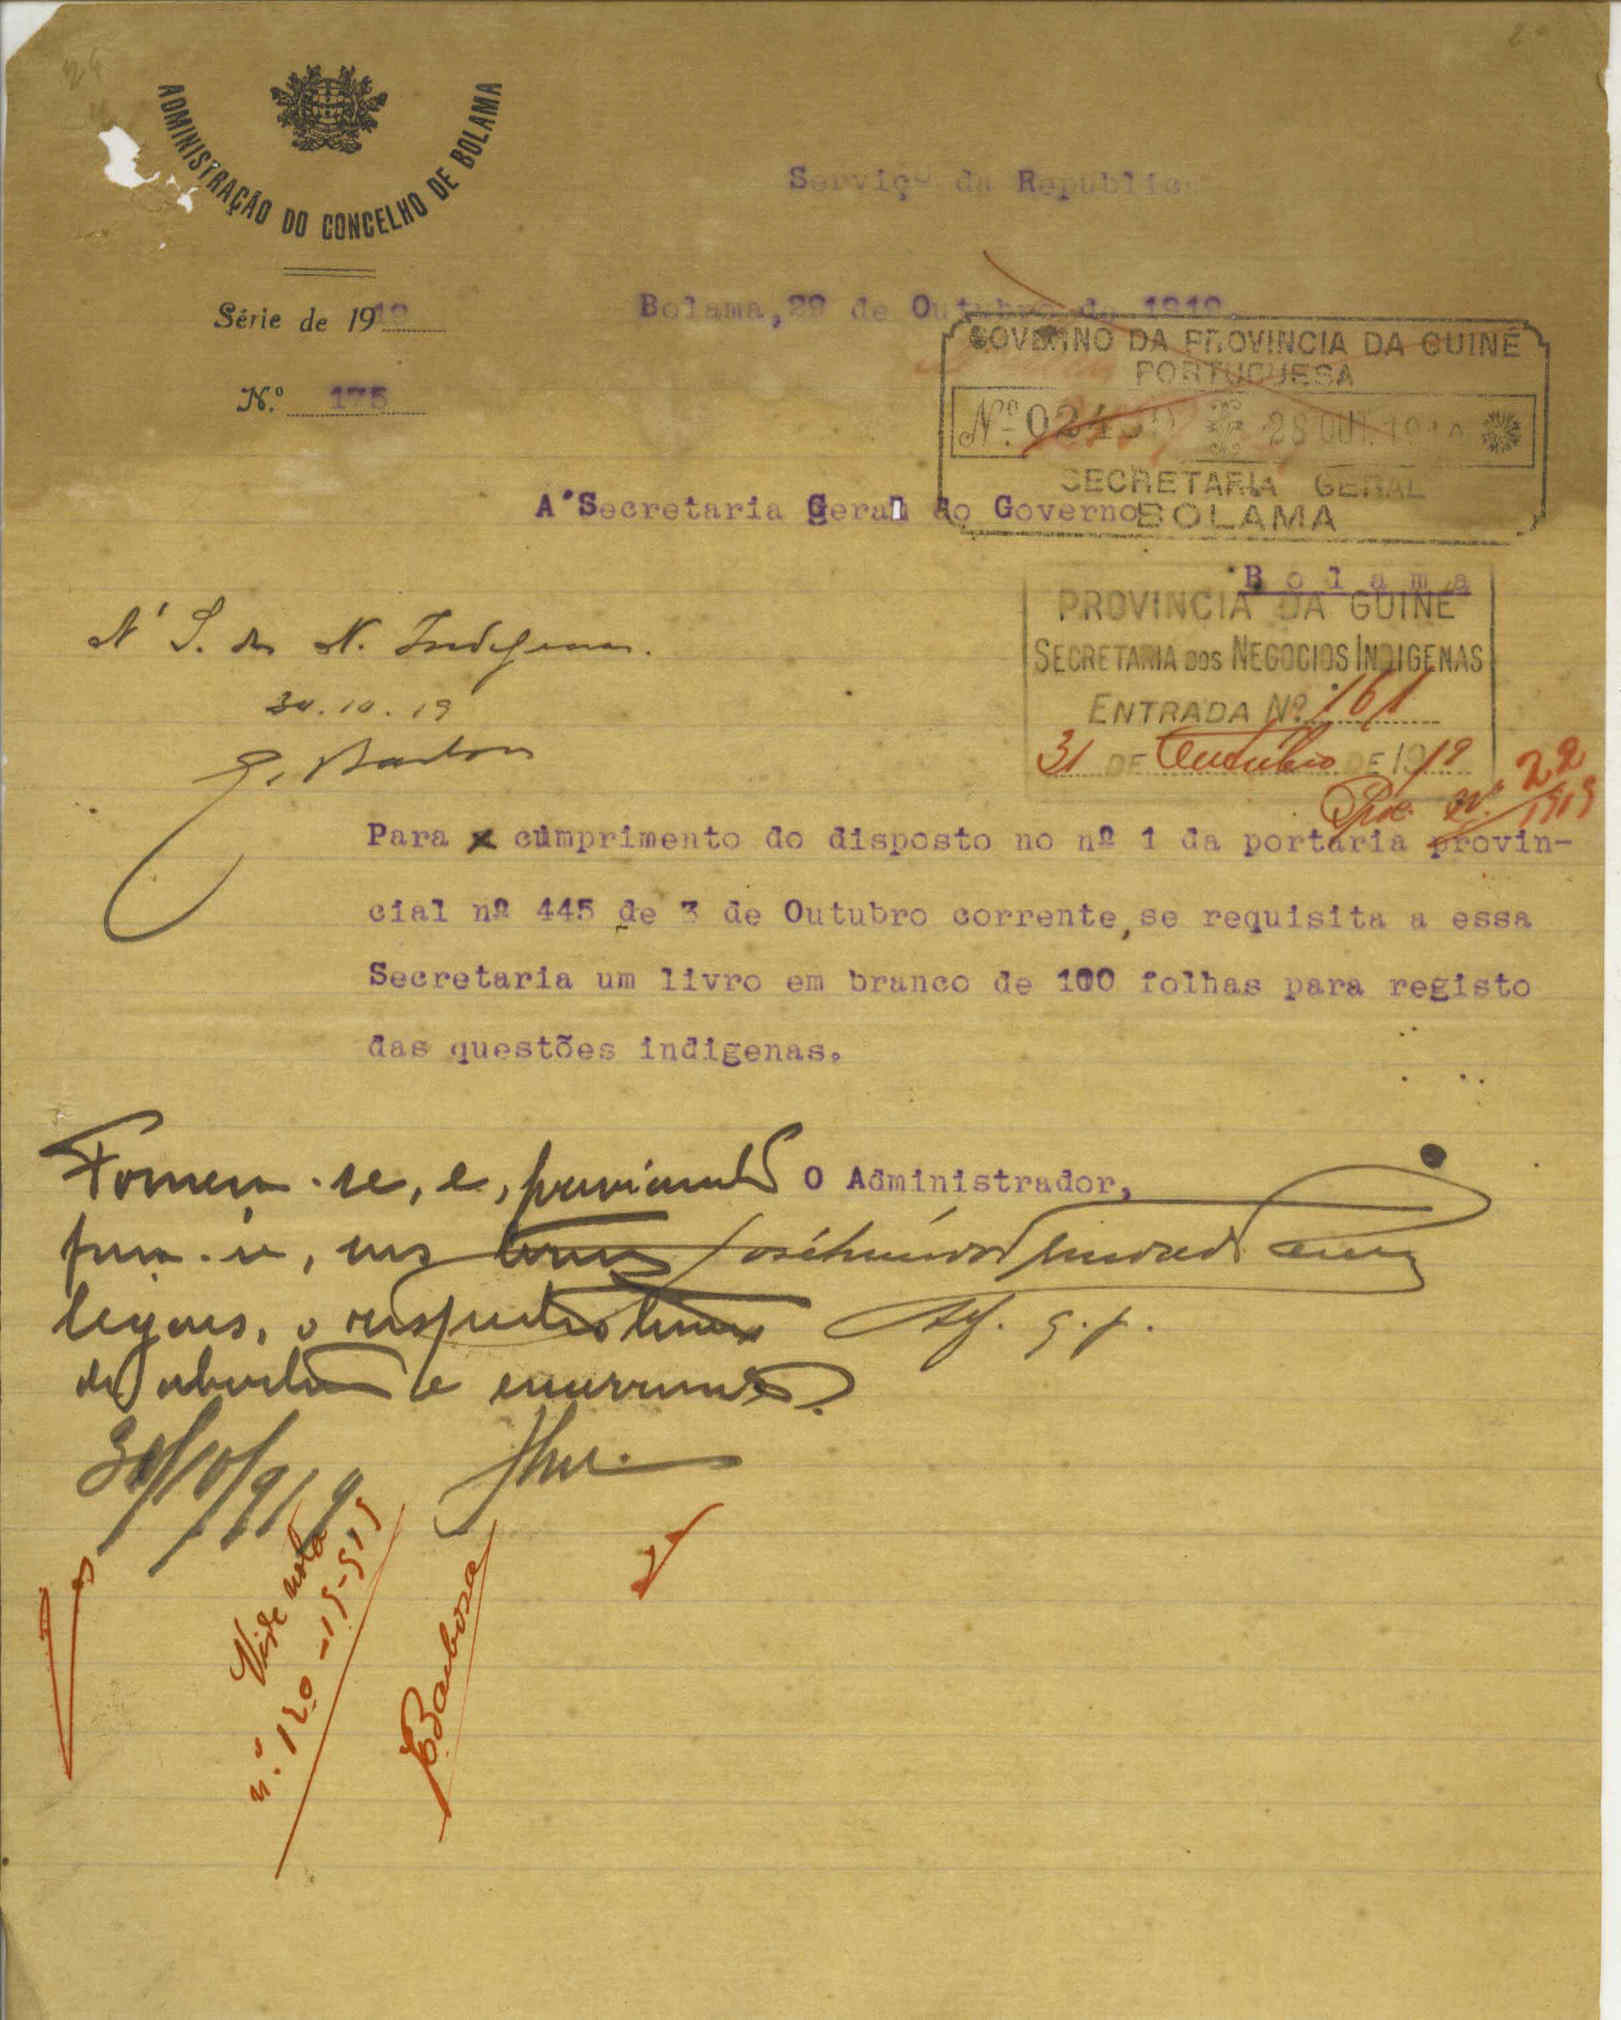 ADMINISTRAÇÃO DO CONCELHO DE BOLAMA
Serviço da Republica
Série de 1919
Bolama, 29 de Outubro de 1919.
N.º 175
GOVERNO DA PROVINCIA DA GUINÉ
PORTUGUESA
Nº 024 28 OUT. 19
SECRETARIA GERAL
BOLAMA
A'Secretaria Geral do Governo
Bolama
PROVINCIA DA GUINÉ
SECRETARIA DOS NEGOCIOS INDIGENAS
ENTRADA Nº 161
31 DE Outubro DE 1919
Proc. nº 22
1919
A' S. dos N. Indigenas.
30.10.19
Para cumprimento do disposto no nº 1 da portaria provin-
cial nº 445 de 3 de Outubro corrente, se requisita a essa
Secretaria um livro em branco de 100 folhas para registo
das questões indigenas.
O Administrador,
Forneça-se, e, previamente
legaes, o respectivo termo
de abertura e encerramento.
30/10/919
Vide nota
n.º 120-15-919
Barbosa